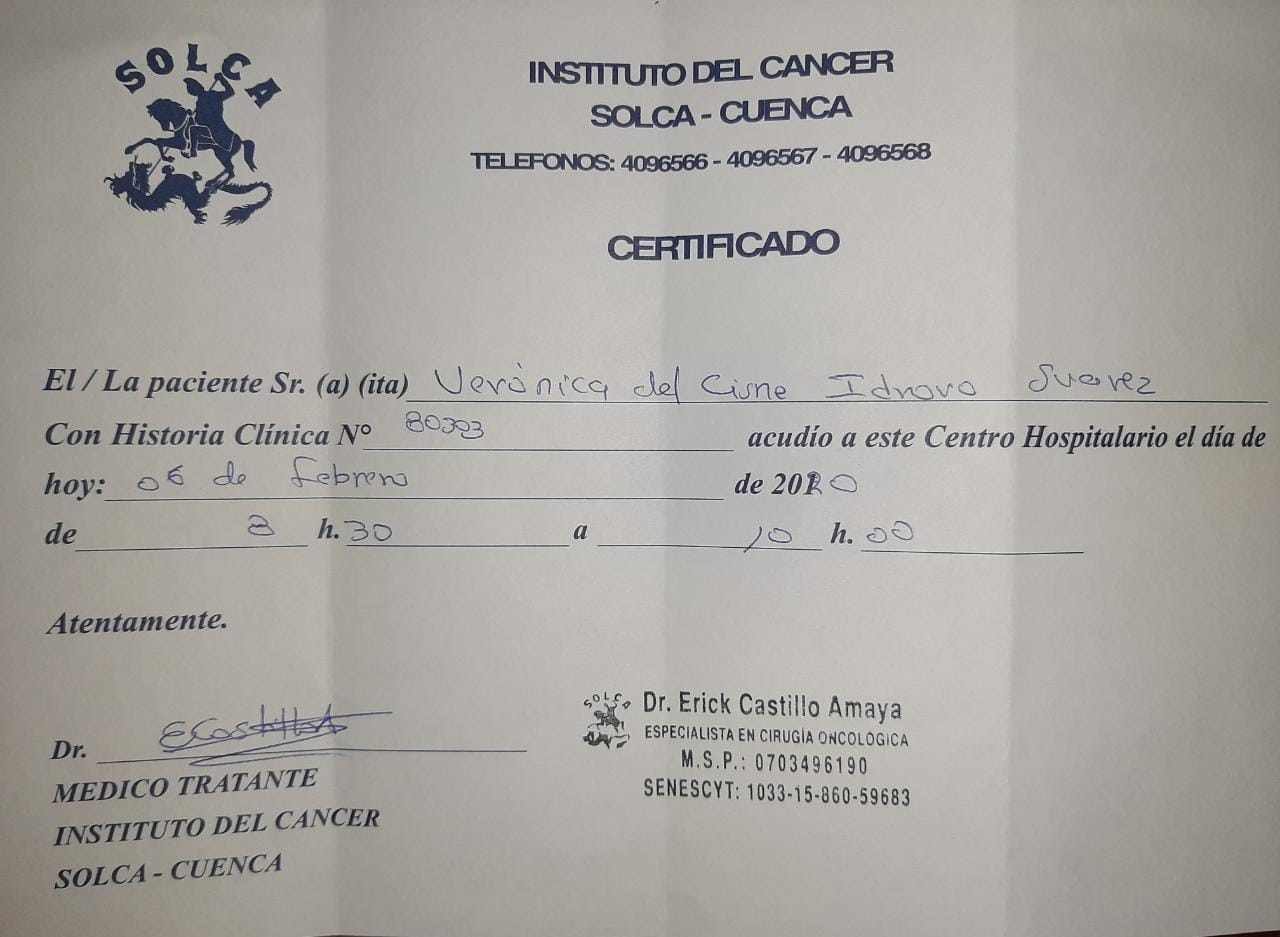 SOLCA
INSTITUTO DEL CANCER
SOLCA - CUENCA
TELEFONOS: 4096566 - 4096567 - 4096568
CERTIFICADO
El / La paciente Sr. (a) (ita) Verónica del Cisne Idrovo Suarez
Con Historia Clínica N° 80393 acudío a este Centro Hospitalario el día de
hoy: 06 de febrero de 2020
de 8 h. 30 a 10 h. 00
Atentamente.
Dr. ECastilloA
MEDICO TRATANTE
INSTITUTO DEL CANCER
SOLCA - CUENCA
SOLCA
Dr. Erick Castillo Amaya
ESPECIALISTA EN CIRUGÍA ONCOLÓGICA
M.S.P.: 0703496190
SENESCYT: 1033-15-860-59683